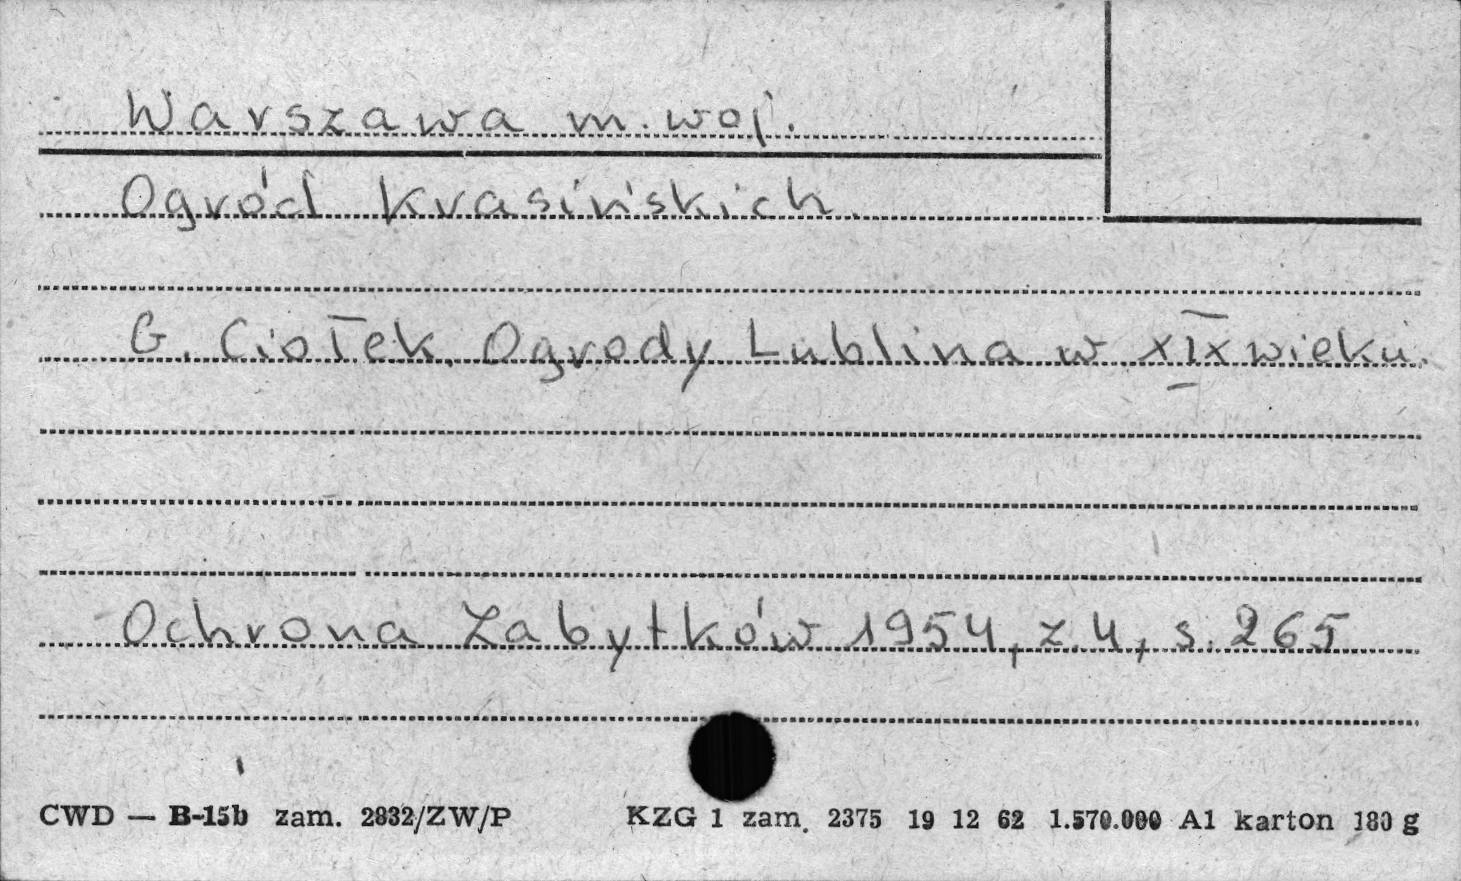 Warszawa m. woj.
Ogród Krasińskich.
G. Ciołek, Ogrody Lublina w XIX wieku.
Ochrona Zabytków 1954, z. 4, s. 265
CWD — B-15b zam. 2832/ZW/P KZG 1 zam. 2375 19 12 62 1.570.000 A1 karton 180 g